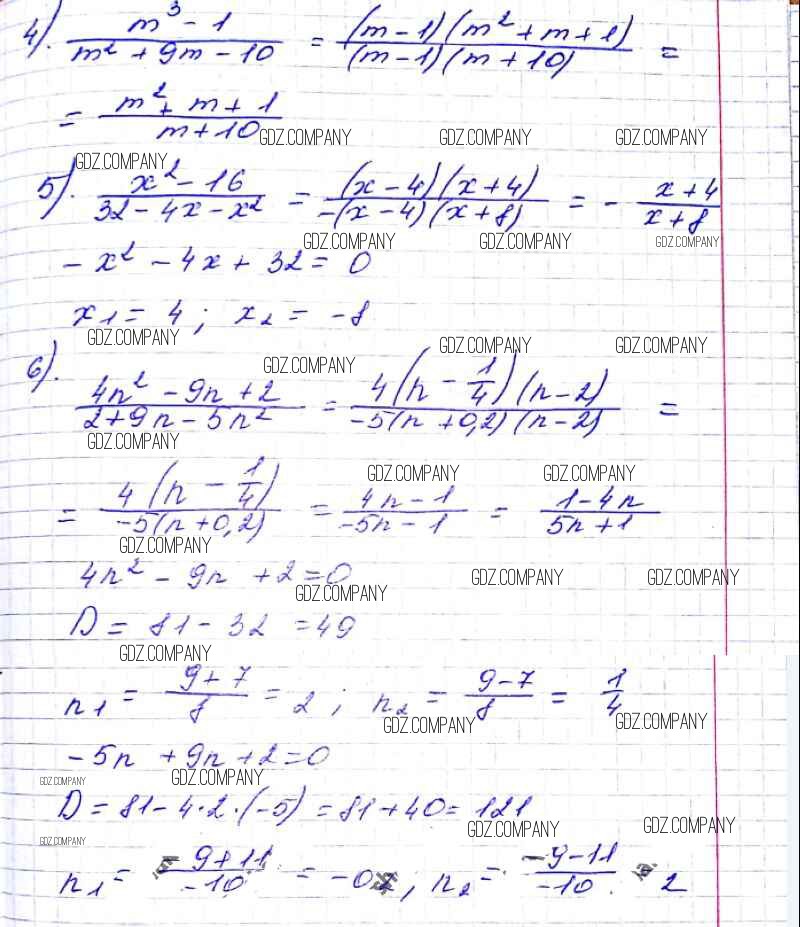 4). (m³ - 1)/(m² + 9m - 10) = ((m - 1)(m² + m + 1))/((m - 1)(m + 10)) =
= (m² + m + 1)/(m + 10)
GDZ.COMPANY GDZ.COMPANY GDZ.COMPANY
GDZ.COMPANY
5). (x² - 16)/(32 - 4x - x²) = ((x - 4)(x + 4))/(-(x - 4)(x + 8)) = - (x + 4)/(x + 8)
GDZ.COMPANY GDZ.COMPANY GDZ.COMPANY
- x² - 4x + 32 = 0
x₁ = 4 ; x₂ = -8
GDZ.COMPANY GDZ.COMPANY GDZ.COMPANY
GDZ.COMPANY
6). (4n² - 9n + 2)/(2 + 9n - 5n²) = (4(n - 1/4)(n - 2))/(-5(n + 0,2)(n - 2)) =
GDZ.COMPANY
GDZ.COMPANY GDZ.COMPANY
= (4(n - 1/4))/(-5(n + 0,2)) = (4n - 1)/(-5n - 1) = (1 - 4n)/(5n + 1)
GDZ.COMPANY
4n² - 9n + 2 = 0
GDZ.COMPANY GDZ.COMPANY GDZ.COMPANY
D = 81 - 32 = 49
GDZ.COMPANY
n₁ = (9 + 7)/8 = 2 ; n₂ = (9 - 7)/8 = 1/4
GDZ.COMPANY GDZ.COMPANY
- 5n + 9n + 2 = 0
GDZ.COMPANY GDZ.COMPANY
D = 81 - 4·2·(-5) = 81 + 40 = 121
GDZ.COMPANY GDZ.COMPANY GDZ.COMPANY
n₁ = (-9 + 11)/(-10) = -0, ; n₂ = (-9 - 11)/(-10) 2